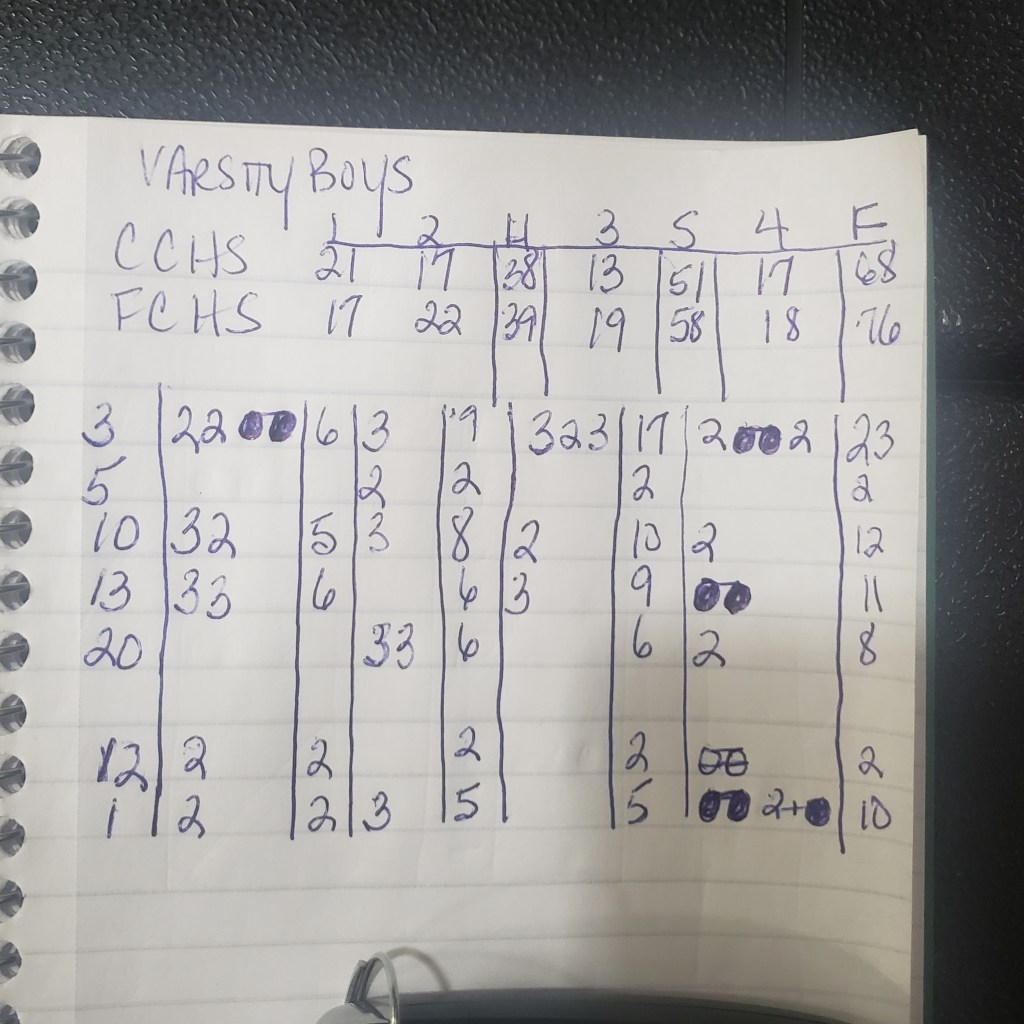 VARSITY BOYS
1 2 H 3 S 4 F
CCHS 21 17 38 13 51 17 68
FCHS 17 22 39 19 58 18 76
3 22 6 3 9 323 17 2 2 23
5 2 2 2 2
10 32 5 3 8 2 10 2 12
13 33 6 6 3 9 11
20 33 6 6 2 8
12 2 2 2 2 2
1 2 2 3 5 5 2+ 10